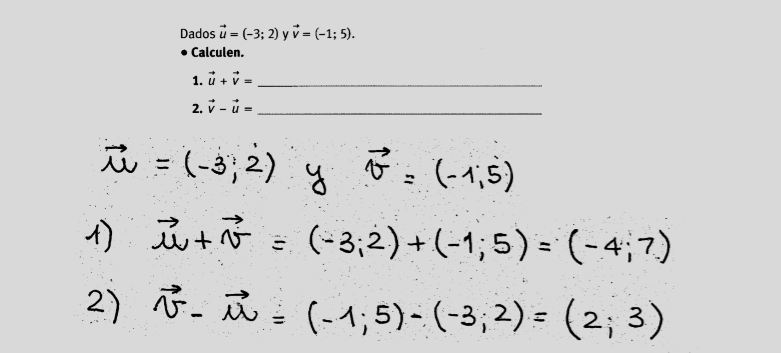 Dados u⃗ = (–3; 2) y v⃗ = (–1; 5).
• Calculen.
1. u⃗ + v⃗ = ____________________
2. v⃗ – u⃗ = ____________________
u⃗ = (-3; 2) y v⃗ = (-1; 5)
1) u⃗ + v⃗ = (-3; 2) + (-1; 5) = (-4; 7)
2) v⃗ - u⃗ = (-1; 5) - (-3; 2) = (2; 3)